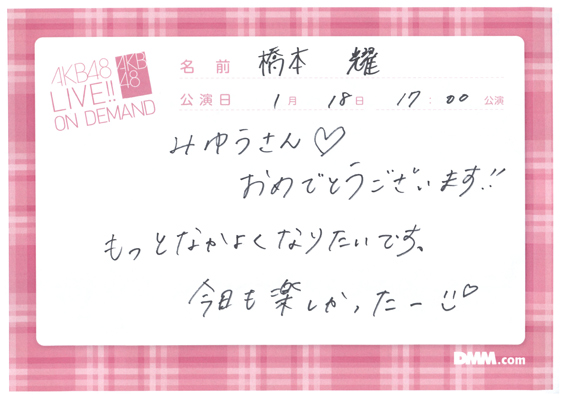 AKB48
LIVE!!
ON DEMAND
AKB
48
名前 橋本 耀
公演日 1月 18日 17:00 公演
みゆうさん♡
おめでとうございます!!
もっとなかよくなりたいです。
今日も楽しかったー
DMM.com